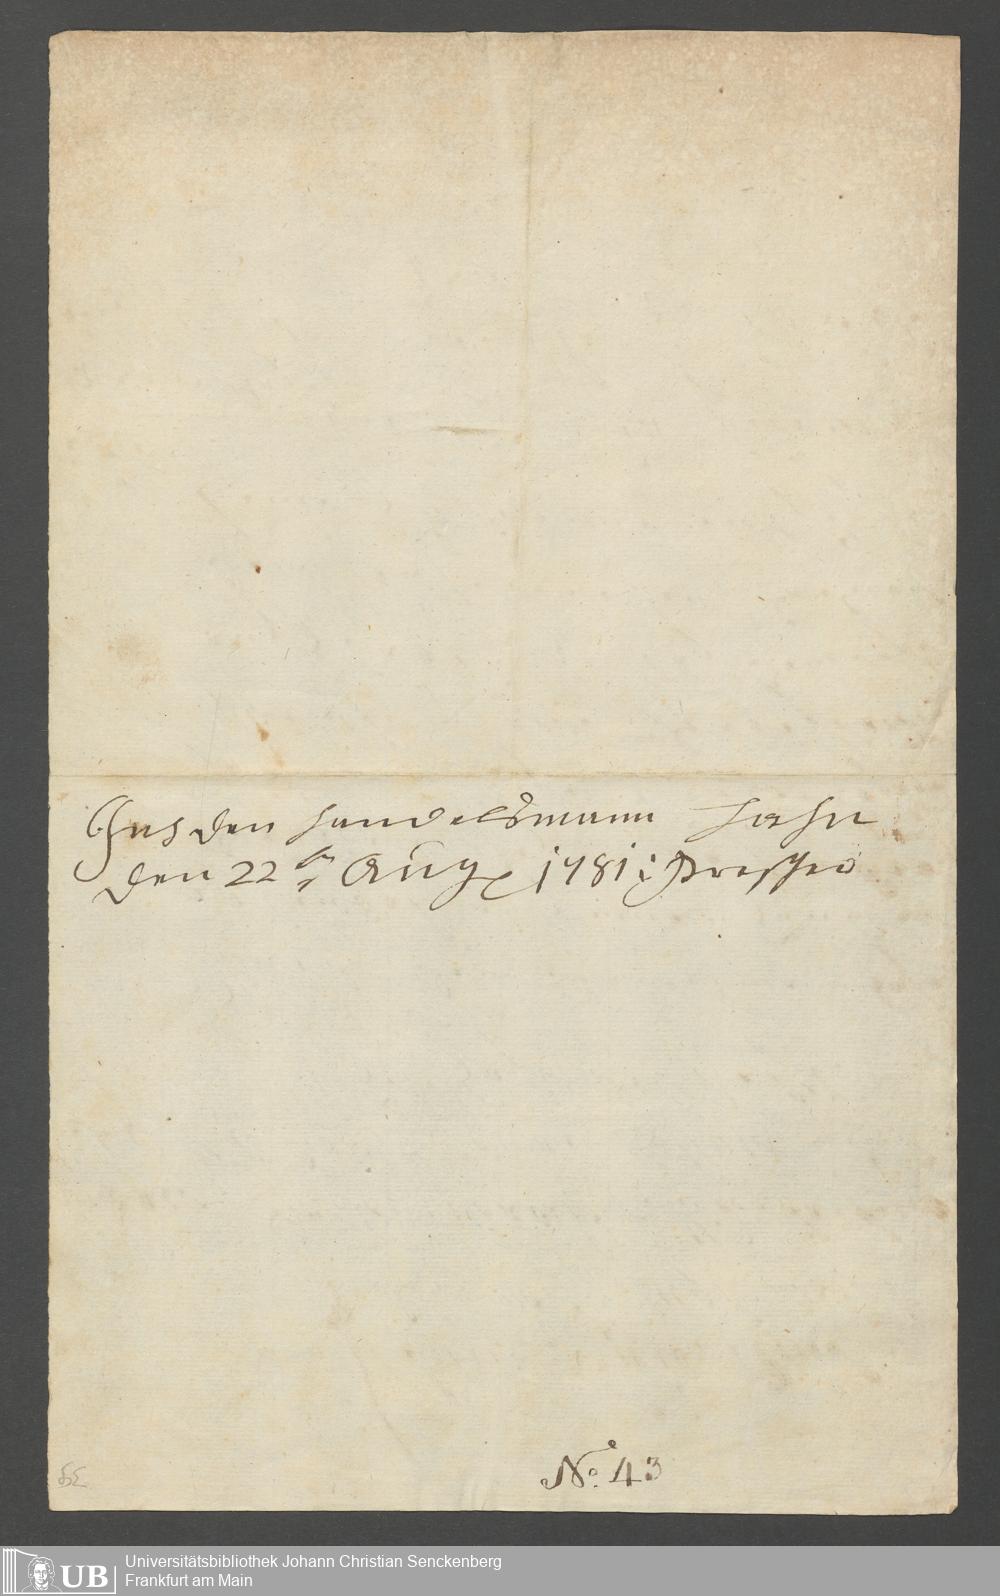 den handelsmann Hahn
den 22ten Aug 1781:
No. 43
UB
Universitätsbibliothek Johann Christian Senckenberg
Frankfurt am Main